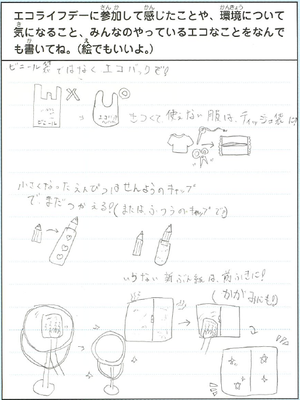 エコライフデーに参加して感じたことや、環境について
気になること、みんなのやっているエコなことをなんで
も書いてね。(絵でもいいよ。)
ビニール袋ではなくエコバックを!
きつくて使えない服は、ティッシュ袋に!
小さくなったえんぴつはせんようのキャップ
で、まだつかえる!(またはふつうのキャップで)
いらない新ぶん紙は、前ふきに!
(かがみにも)